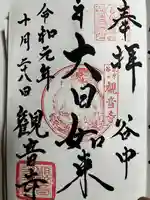 奉拝
谷中
大日如来
観音寺
令和元年
十月二八日